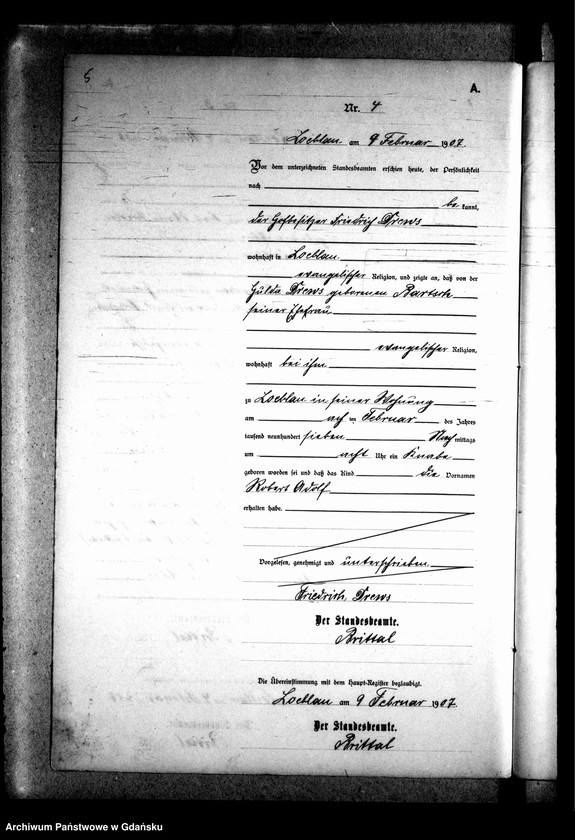 5
A.
Nr. 4
Loeblau am 9 Februar 1907.
Vor dem unterzeichneten Standesbeamten erschien heute, der Persönlichkeit
nach
be kannt,
der Hofbesitzer Friedrich Drews
wohnhaft in Loeblau
evangelischer Religion, und zeigte an, daß von der
Hulda Drews geborenen Bartsch
seiner Ehefrau
evangelischer Religion,
wohnhaft bei ihm
zu Loeblau in seiner Wohnung
am acht im Februar des Jahres
tausend neunhundert sieben Nach mittags
um acht Uhr ein Knabe
geboren worden sei und daß das Kind die Vornamen
Robert Adolf
erhalten habe.
Vorgelesen, genehmigt und unterschrieben
Friedrich Drews
Der Standesbeamte.
Brittal
Die Übereinstimmung mit dem Haupt-Register beglaubigt.
Loeblau am 9 Februar 1907
Der Standesbeamte.
Brittal
Archiwum Państwowe w Gdańsku